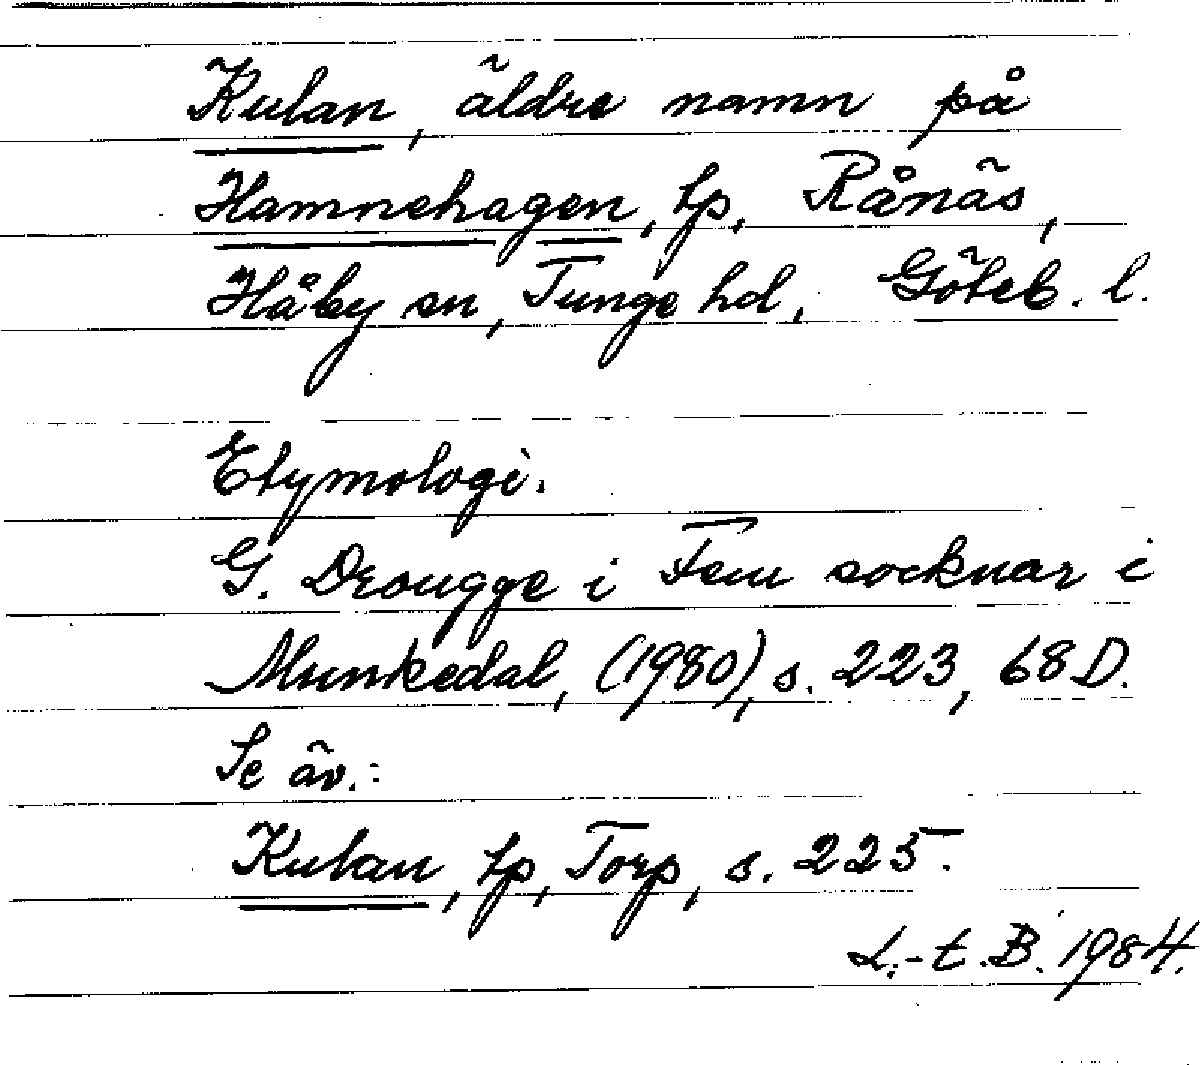 Kulan, äldre namn på
Hamnehagen, tp, Rånäs,
Håby sn, Tunge hd, Göteb. l.
Etymologi.
G. Drougge i Fem socknar i
Munkedal, (1980), s. 223, 68 D.
Se äv.:
Kulan, tp, Torp, s. 225.
L.-E. B. 1984.